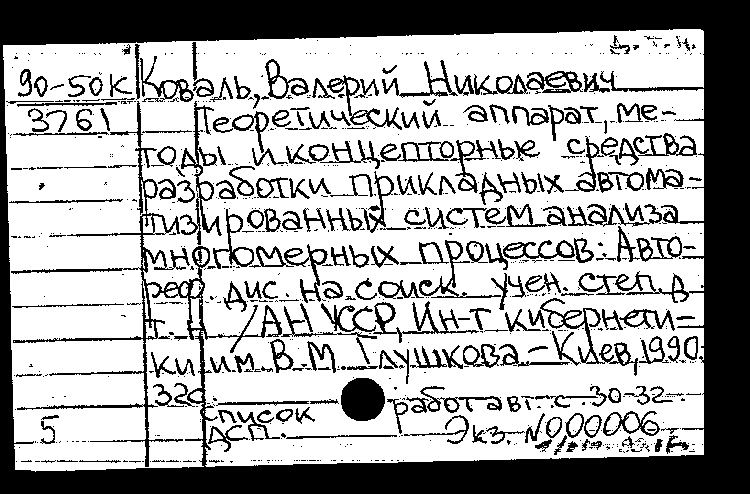 Д. Т. Н.
90-50К Коваль, Валерий Николаевич
3761 Теоретический аппарат, ме-
тоды и концепторные средства
разработки прикладных автома-
тизированных систем анализа
многомерных процессов: Авто-
реф. дис. на соиск. учен. степ. д.
т. н. / АН УССР, Ин-т кибернети-
ки им В. М Глушкова - Киев, 1990.
32с.
список работ авт. с. 30-32.
5 ДСП. Экз. N000006